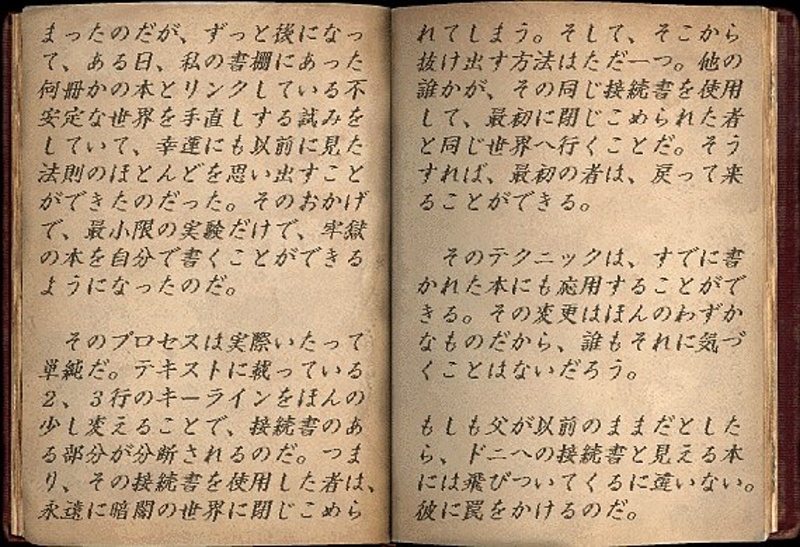 まったのだが、ずっと後になっ
て、ある日、私の書棚にあった
何冊かの本とリンクしている不
安定な世界を手直しする試みを
していて、幸運にも以前に見た
法則のほとんどを思い出すこと
ができたのだった。そのおかげ
で、最小限の実験だけで、牢獄
の本を自分で書くことができる
ようになったのだ。
そのプロセスは実際いたって
単純だ。テキストに載っている
2、3行のキーラインをほんの
少し変えることで、接続書のあ
る部分が分断されるのだ。つま
り、その接続書を使用した者は、
永遠に暗闇の世界に閉じこめら
れてしまう。そして、そこから
抜け出す方法はただ一つ。他の
誰かが、その同じ接続書を使用
して、最初に閉じこめられた者
と同じ世界へ行くことだ。そう
すれば、最初の者は、戻って来
ることができる。
そのテクニックは、すでに書
かれた本にも応用することがで
きる。その変更はほんのわずか
なものだから、誰もそれに気づ
くことはないだろう。
もしも父が以前のままだとした
ら、ドニへの接続書と見える本
には飛びついてくるに違いない。
彼に罠をかけるのだ。